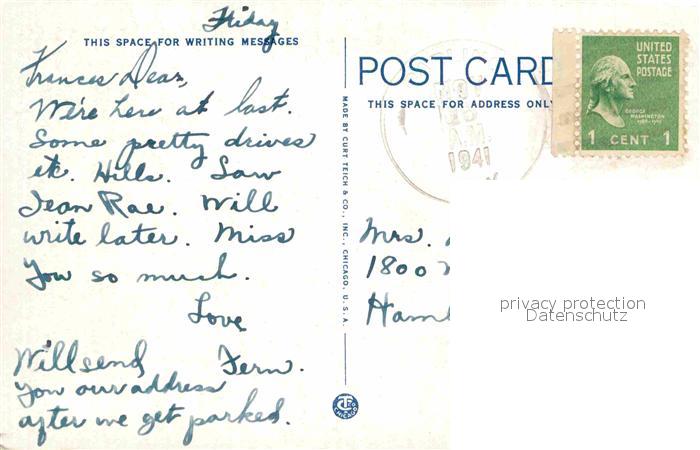 Friday
THIS SPACE FOR WRITING MESSAGES
Frances Dear,
We're here at last.
Some pretty drives
etc. Hills. Saw
Jean Rae. Will
write later. Miss
you so much.
Love
Fern.
Will send
you our address
after we get parked.
MADE BY CURT TEICH & CO., INC., CHICAGO, U.S.A.
POST CARD
THIS SPACE FOR ADDRESS ONLY
A.M.
1941
UNITED
STATES
POSTAGE
GEORGE
WASHINGTON
1 CENT 1
Mrs.
1800
Ham
privacy protection
Datenschutz
CHICAGO